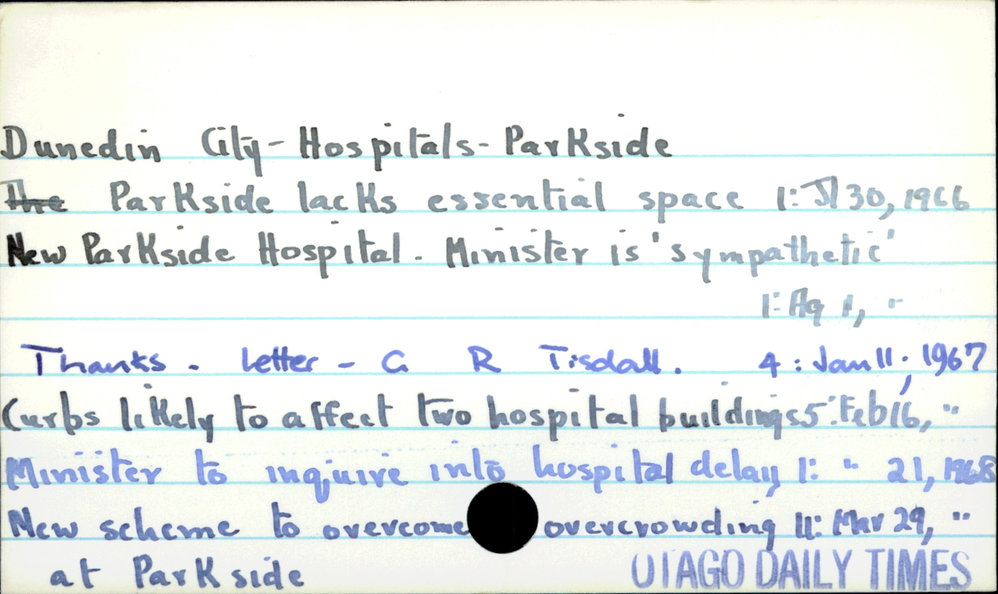 Dunedin City - Hospitals - Parkside
The Parkside lacks essential space 1: Jl 30, 1966
New Parkside Hospital. Minister is 'sympathetic'
1: Ag 1, "
Thanks - Letter - G R Tisdall. 4: Jan 11, 1967
Curbs likely to affect two hospital buildings 5: Feb 16, "
Minister to inquire into hospital delay 1: " 21, 1968
New scheme to overcome overcrowding 11: Mar 29, "
at Parkside
OTAGO DAILY TIMES